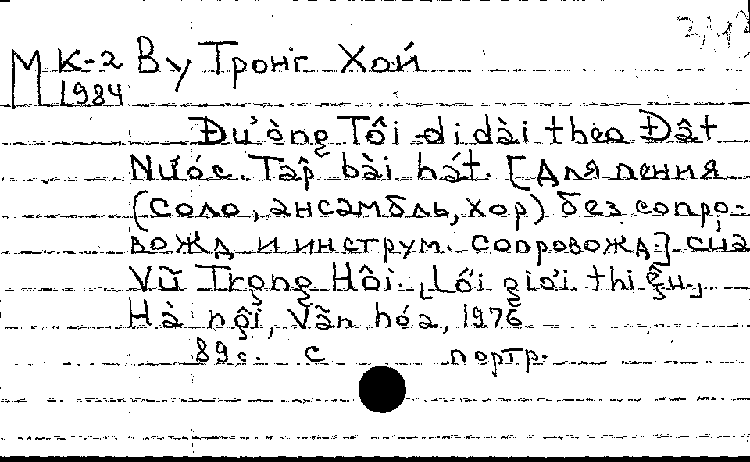 М К-2 Ву Тронг Хой
1984
Đường Tôi đi dài theo Đất
Nước. Tập bài hát. [Для пения
(соло, ансамбль, хор) без сопро-
вожд и инструм. сопровожд.] của
Vũ Trọng Hôi. [Lối giới thiệu.]
Hà nội, Văn hóa, 1976
89с. с портр.